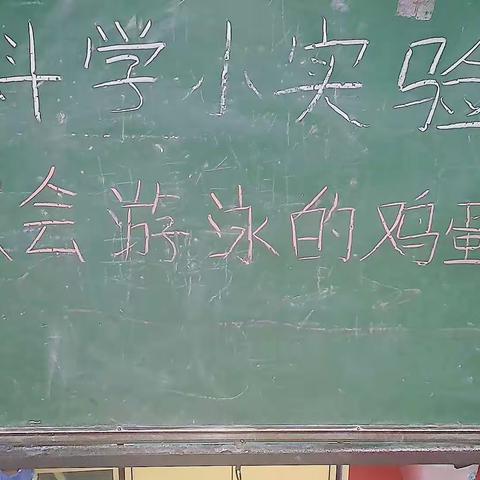 科学小实验
会游泳的鸡蛋